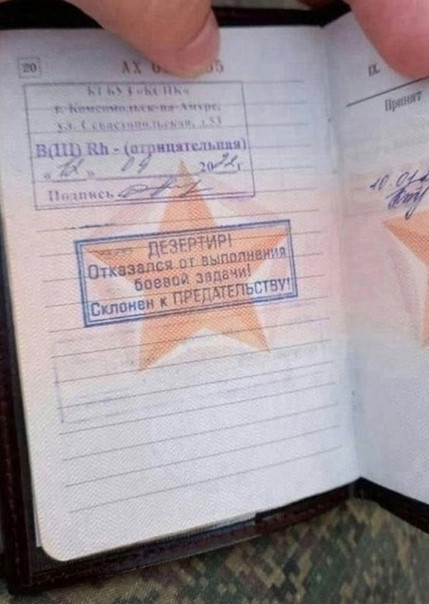 20
АХ
КГБУЗ «КСПК»
г. Комсомольск-на-Амуре,
ул. Севастопольская, д.53
В(III) Rh - (отрицательная)
«12» 04 2022г
Подпись
ДЕЗЕРТИР!
Отказался от выполнения
боевой задачи!
Склонен к ПРЕДАТЕЛЬСТВУ!
IX.
Принят